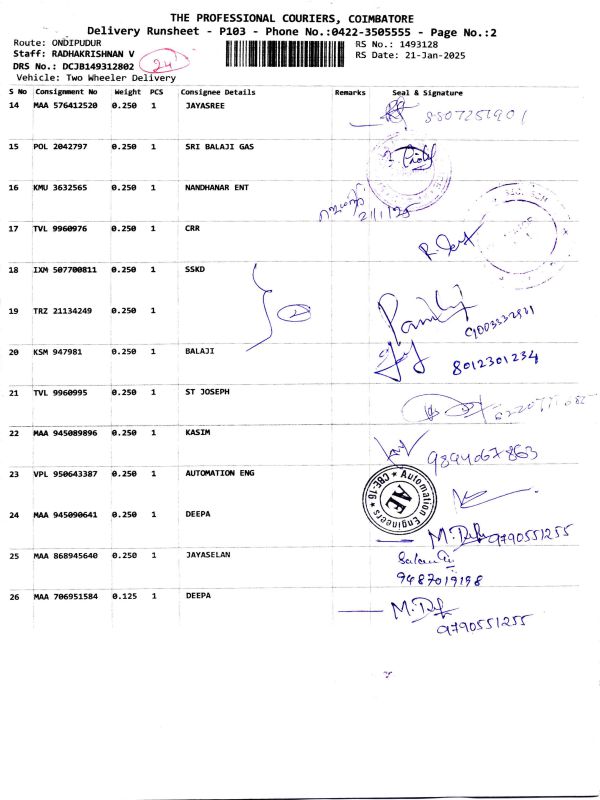 THE PROFESSIONAL COURIERS, COIMBATORE
Delivery Runsheet - P103 - Phone No.:0422-3505555 - Page No.:2
Route: ONDIPUDUR
RS No.: 1493128
Staff: RADHAKRISHNAN V
24
RS Date: 21-Jan-2025
DRS No.: DCJB149312802
Vehicle: Two Wheeler Delivery
S No Consignment No Weight PCS Consignee Details Remarks Seal & Signature
14 MAA 576412520 0.250 1 JAYASREE 8807251901
15 POL 2042797 0.250 1 SRI BALAJI GAS
16 KMU 3632565 0.250 1 NANDHANAR ENT
21/1/25
17 TVL 9960976 0.250 1 CRR
18 IXM 507700811 0.250 1 SSKD
2
19 TRZ 21134249 0.250 1
20 KSM 947981 0.250 1 BALAJI 8012301234
21 TVL 9960995 0.250 1 ST JOSEPH
22 MAA 945089896 0.250 1 KASIM 9894067863
23 VPL 950643387 0.250 1 AUTOMATION ENG
Automation Engineers * CBE-16 *
AE
24 MAA 945090641 0.250 1 DEEPA 9790551255
25 MAA 868945640 0.250 1 JAYASELAN
9487019198
26 MAA 706951584 0.125 1 DEEPA
9790551255